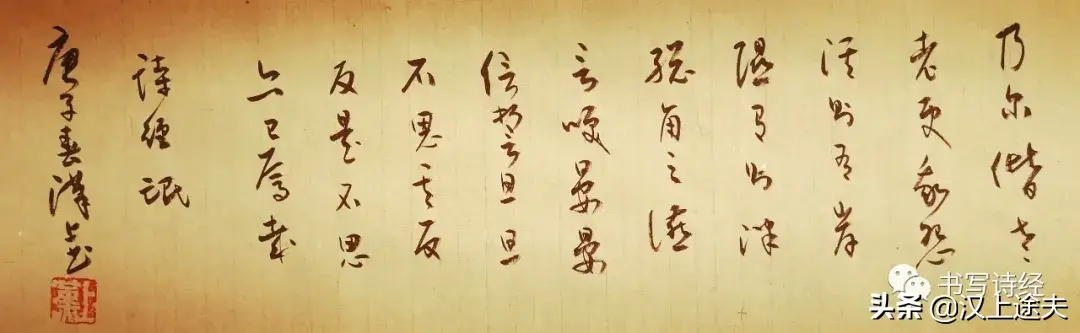 及尔偕老
老使我怨
淇则有岸
隰有则泮
總角之讌
言咲晏晏
信誓旦旦
不思其反
反是不思
亦已焉哉
詩經 氓
庚子春漢上書
书写诗经
头条@汉上途夫